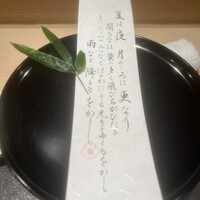 夏は夜 月のころは 更なり
闇もなほ 蛍の多く飛びちがひたる
また ただ一つ二つなど ほのかにうち光りて行くもをかし
雨など降るもをかし